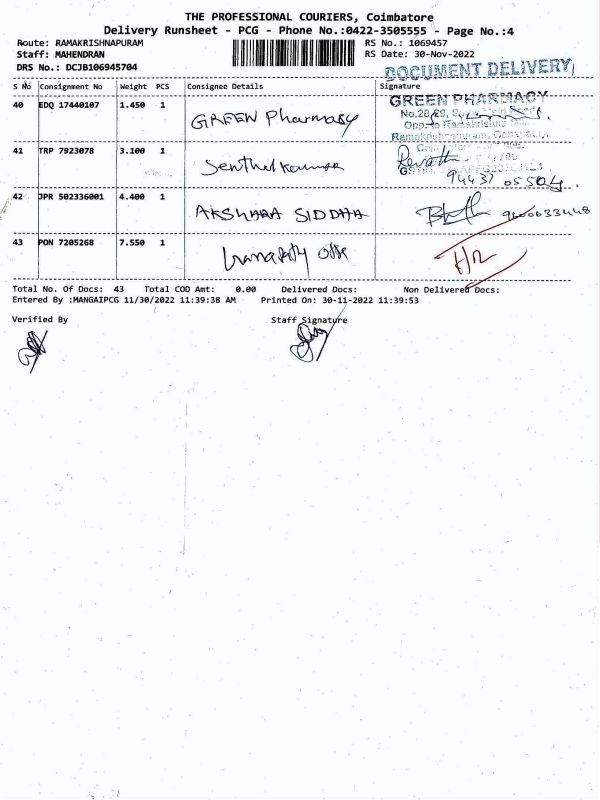 THE PROFESSIONAL COURIERS, Coimbatore
Delivery Runsheet - PCG - Phone No.:0422-3505555 - Page No.:4
Route: RAMAKRISHNAPURAM RS No.: 1069457
Staff: MAHENDRAN RS Date: 30-Nov-2022
DRS No.: DCJB106945704
DOCUMENT DELIVERY
S No Consignment No Weight PCS Consignee Details Signature
40 EDQ 17440107 1.450 1 GREEN Pharmacy GREEN PHARMACY
No.28/29,
Opp. to Ramakrishna
Ramakrishnapuram, Ganapathy,
41 TRP 7923078 3.100 1 Senthil Kumar Revathi
94437 05504
42 JPR 502336001 4.400 1 AKSHARA SIDDHA 9600633448
43 PON 7205268 7.550 1
Total No. Of Docs: 43 Total COD Amt: 0.00 Delivered Docs: Non Delivered Docs:
Entered By :MANGAIPCG 11/30/2022 11:39:38 AM Printed On: 30-11-2022 11:39:53
Verified By Staff Signature